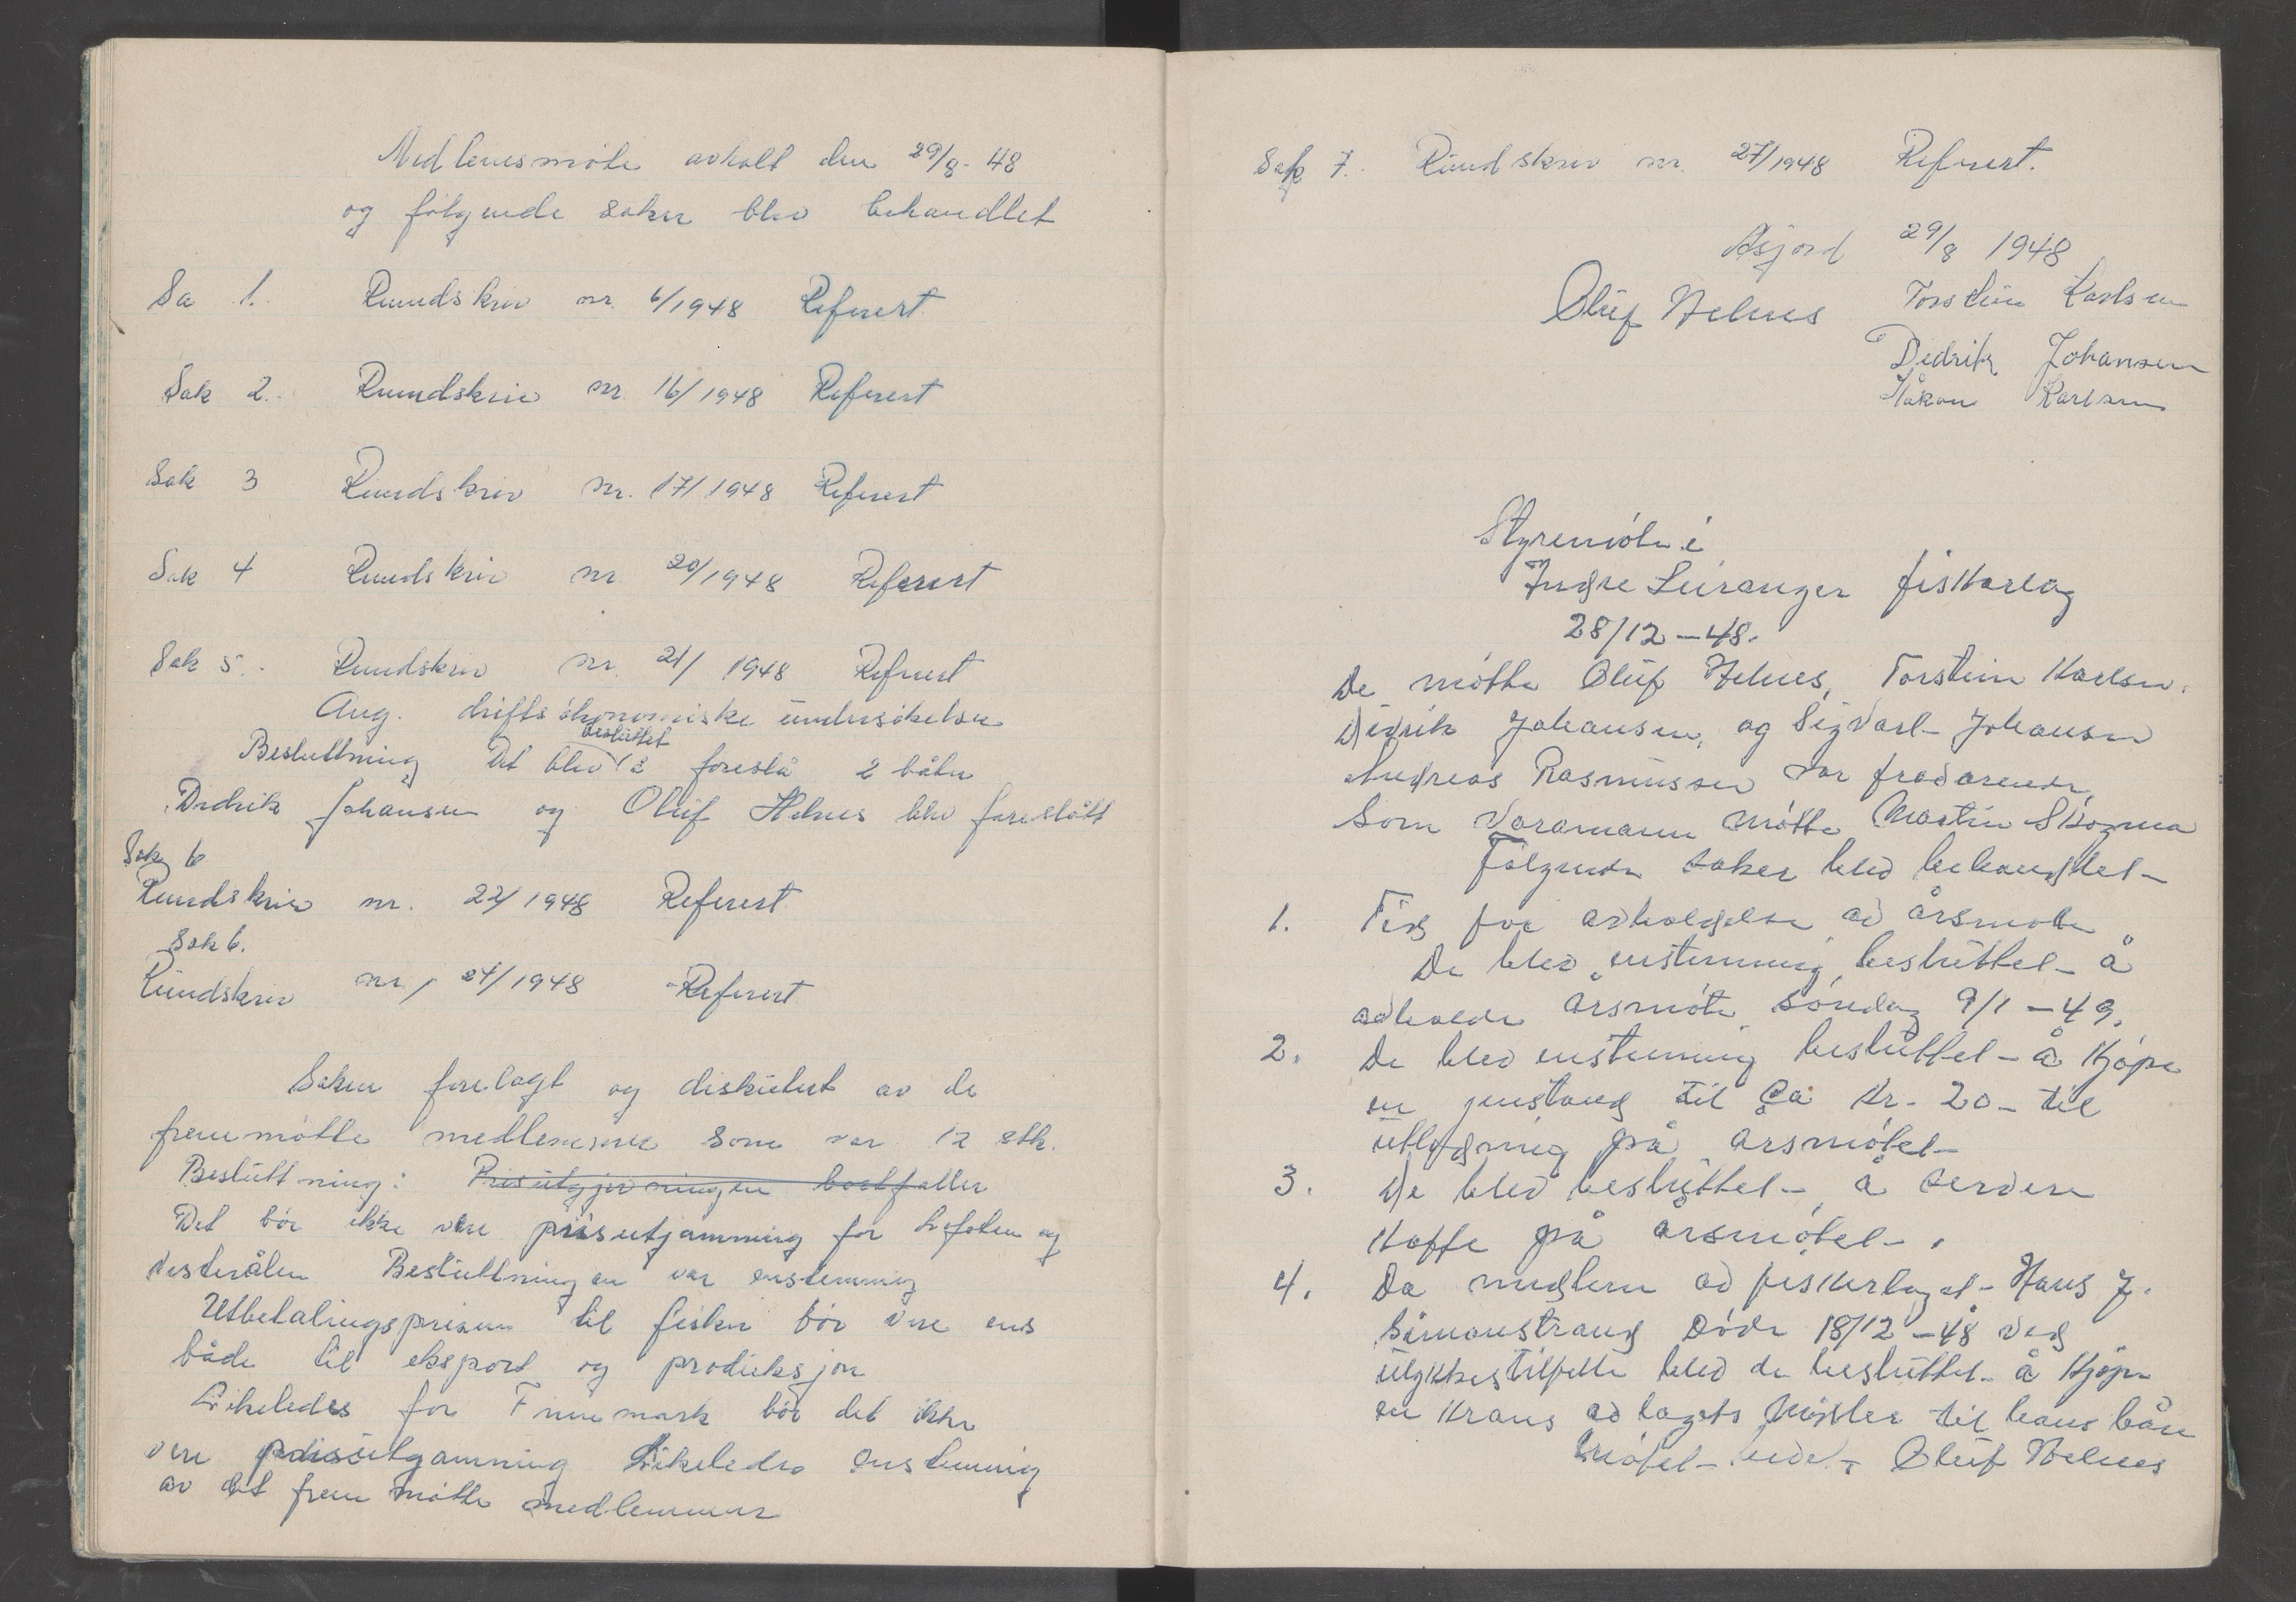 Medlemsmöte avholt den 29/8-48
og følgende saker blev behandlet
Sa 1. Rundskriv nr. 6/1948 Referert.
Sak 2. Rundskriv nr. 16/1948 Referert
Sak 3 Rundskriv nr. 17/1948 Referert
Sak 4 Rundskriv nr 20/1948 Referert
Sak 5. Rundskriv nr. 21/1948 Referert
Ang. driftsökonomiske undersökelser
besluttet
Besluttning Det blev å foreslå 2 båter
Didrik Johansen og Oluf Helnes blev foreslått
Sak 6
Rundskriv nr. 22/1948 Referert
Sak 6.
Rundskriv nr, 24/1948 Referert
Saken forelagt og diskutert av de
fremmötte medlemmer som var 12 stk.
Besluttning: Prisutgjevningen bortfaller
Det bör ikke vere prisutjamning for Lofoten og
Vesterålen Besluttningen var enstemmig
Utbetalingsprisen til fisker bör vere ens
både til eksport og produksjon
Likeledes for Finnmark bör det ikke
vere prisutgamning Likeledes enstemmig
av det frem mötte medlemmer
Sak 7. Rundskriv nr. 27/1948 Referert.
Åsjord 29/8 1948
Oluf Helnes Torstein Karlsen
Dedrik Johansen
Håkon Karlsen
Styremöte i
Indre Leiranger fiskarlag
28/12-48.
De mötte Oluf Helnes, Torstein Karlsen.
Didrik Johansen, og Sigvart Johansen
Andreas Rasmussen var fraværende,
Som Varamann mötte Martin Skogmo
Følgende saker blev behandlet
1. Tid for avholdelse av årsmøte
De blev enstemmig besluttet å
avholde årsmöte söndag 9/1-49.
2. De blev enstemmig besluttet å kjöpe
en jenstand til Ca. Kr. 20- til
utlodning på årsmötet
3. De blev besluttet å servere
Kaffe på årsmötet.
4. Da medlem av fiskerlaget Hans J.
Simonstrand döde 18/12-48 ved
ulykkestilfelle blev de besluttet å kjöpe
en krans av lagets midler til hans båre
Mötet hevet Oluf Helnes